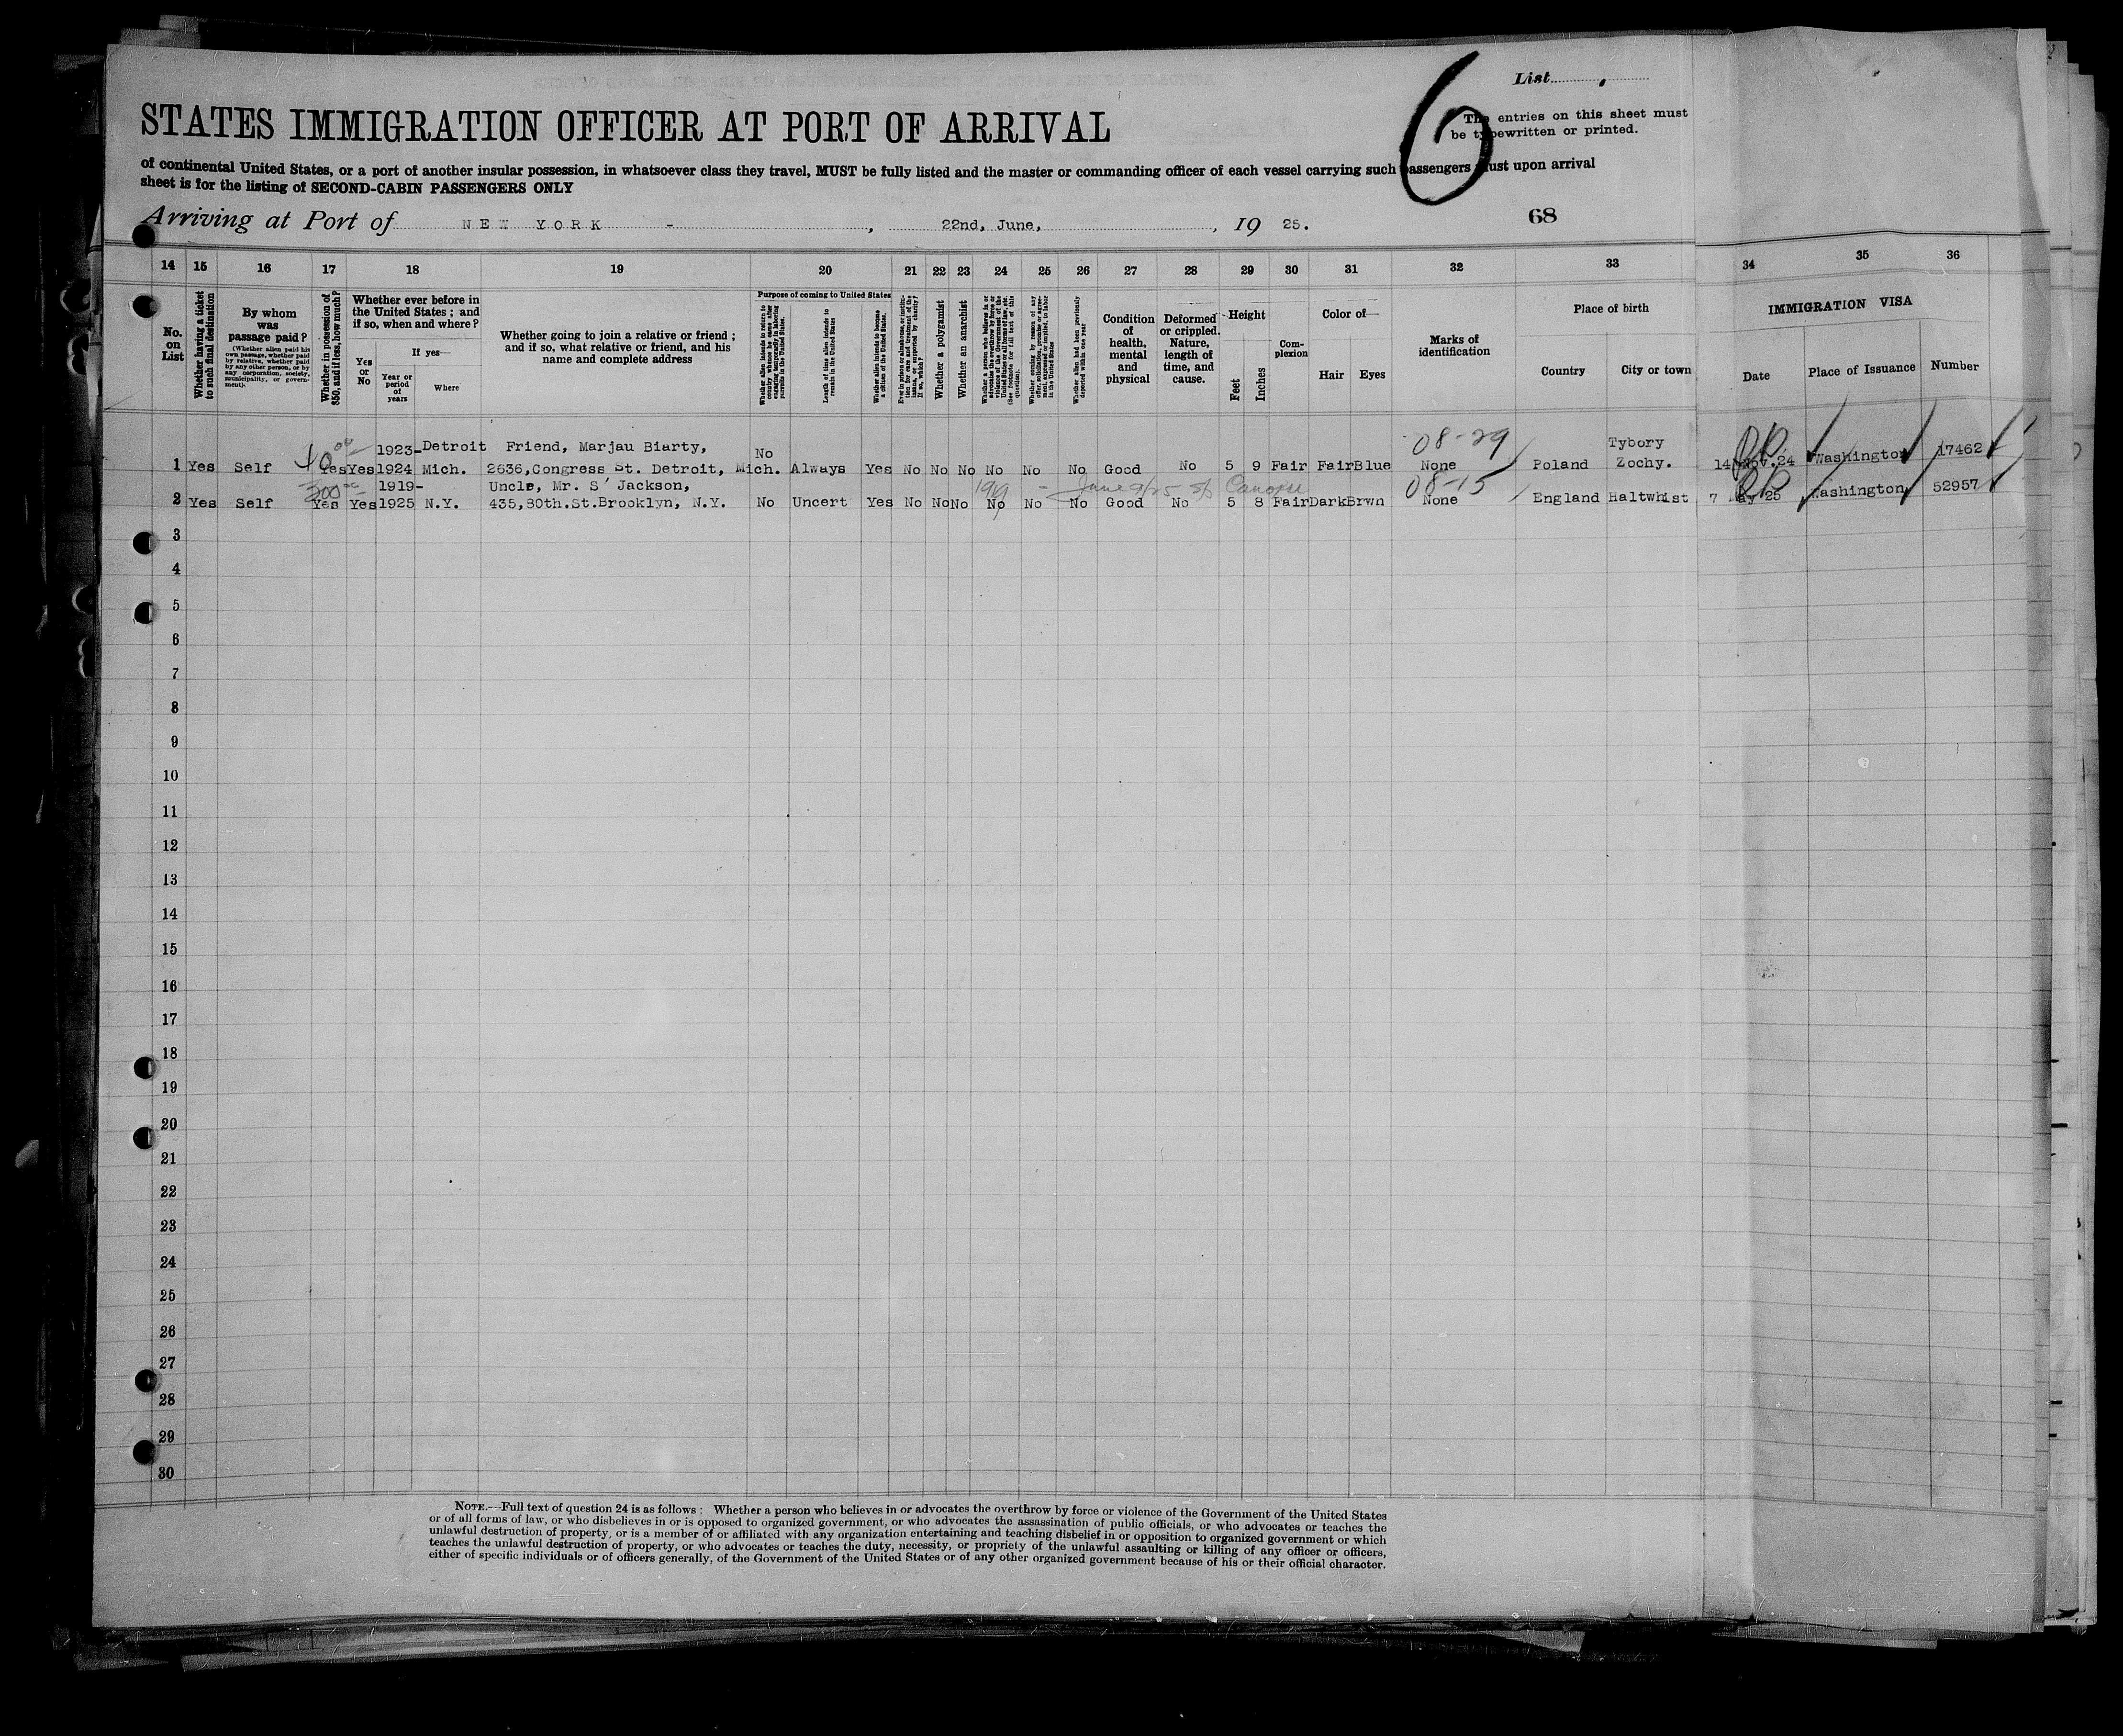 List
STATES IMMIGRATION OFFICER AT PORT OF ARRIVAL
6
The entries on this sheet must
be typewritten or printed.
of continental United States, or a port of another insular possession, in whatsoever class they travel, MUST be fully listed and the master or commanding officer of each vessel carrying such passengers must upon arrival
sheet is for the listing of SECOND-CABIN PASSENGERS ONLY
Arriving at Port of NEW YORK - , 22nd, June, , 19 25.
68
14 15 16 17 18 19 20 21 22 23 24 25 26 27 28 29 30 31 32 33 34 35 36
No. on List
Whether having a ticket to such final destination
By whom was passage paid?
(Whether alien paid his own passage, whether paid by relative, whether paid by any other person, or by any corporation, society, municipality, or government).
Whether in possession of $50, and if less, how much?
Whether ever before in the United States; and if so, when and where?
Yes or No
If yes—
Year or period of years
Where
Whether going to join a relative or friend; and if so, what relative or friend, and his name and complete address
Purpose of coming to United States
Length of time alien intends to remain in the United States
Whether alien intends to become a citizen of the United States.
Whether a polygamist
Whether an anarchist
Whether alien had been previously deported within one year
Condition of health, mental and physical
Deformed or crippled. Nature, length of time, and cause.
Height
Feet
Inches
Complexion
Color of—
Hair Eyes
Marks of identification
Place of birth
Country City or town
IMMIGRATION VISA
Date Place of Issuance Number
08-29
1923- Detroit Friend, Marjau Biarty, No Tybory
1 Yes Self Yes Yes 1924 Mich. 2636,Congress St. Detroit, Mich. Always Yes No No No No No No Good No 5 9 Fair Fair Blue None Poland Zochy. 14 Nov. 24 Washington 17462
300 1919- Uncle, Mr. S' Jackson, 1919 - June 9/25 Canopic 08-15
2 Yes Self Yes Yes 1925 N.Y. 435,80th.St.Brooklyn, N.Y. No Uncert Yes No No No No No No Good No 5 8 Fair Dark Brwn None England Haltwhist 7 May 25 Washington 52957
3
4
5
6
7
8
9
10
11
12
13
14
15
16
17
18
19
20
21
22
23
24
25
26
27
28
29
30
NOTE.—Full text of question 24 is as follows: Whether a person who believes in or advocates the overthrow by force or violence of the Government of the United States
or of all forms of law, or who disbelieves in or is opposed to organized government, or who advocates the assassination of public officials, or who advocates or teaches the
unlawful destruction of property, or is a member of or affiliated with any organization entertaining and teaching disbelief in or opposition to organized government or which
teaches the unlawful destruction of property, or who advocates or teaches the duty, necessity, or propriety of the unlawful assaulting or killing of any officer or officers,
either of specific individuals or of officers generally, of the Government of the United States or of any other organized government because of his or their official character.